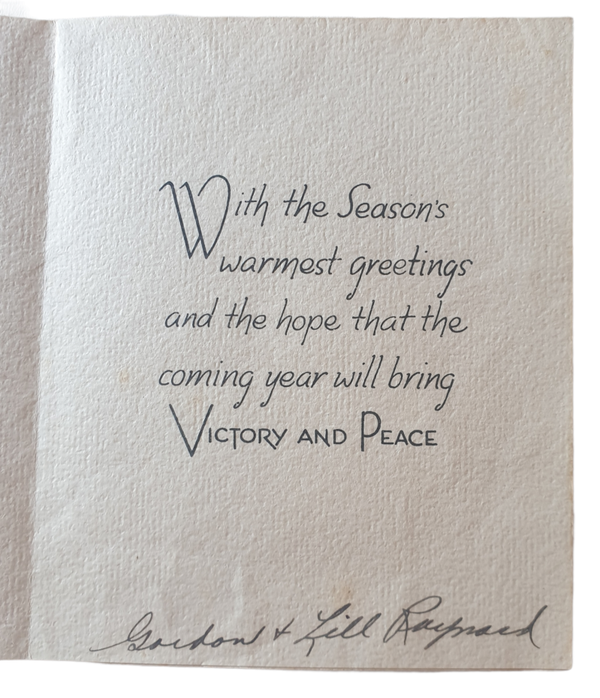 With the Season's
warmest greetings
and the hope that the
coming year will bring
VICTORY AND PEACE
Gordon + Lill Raynard